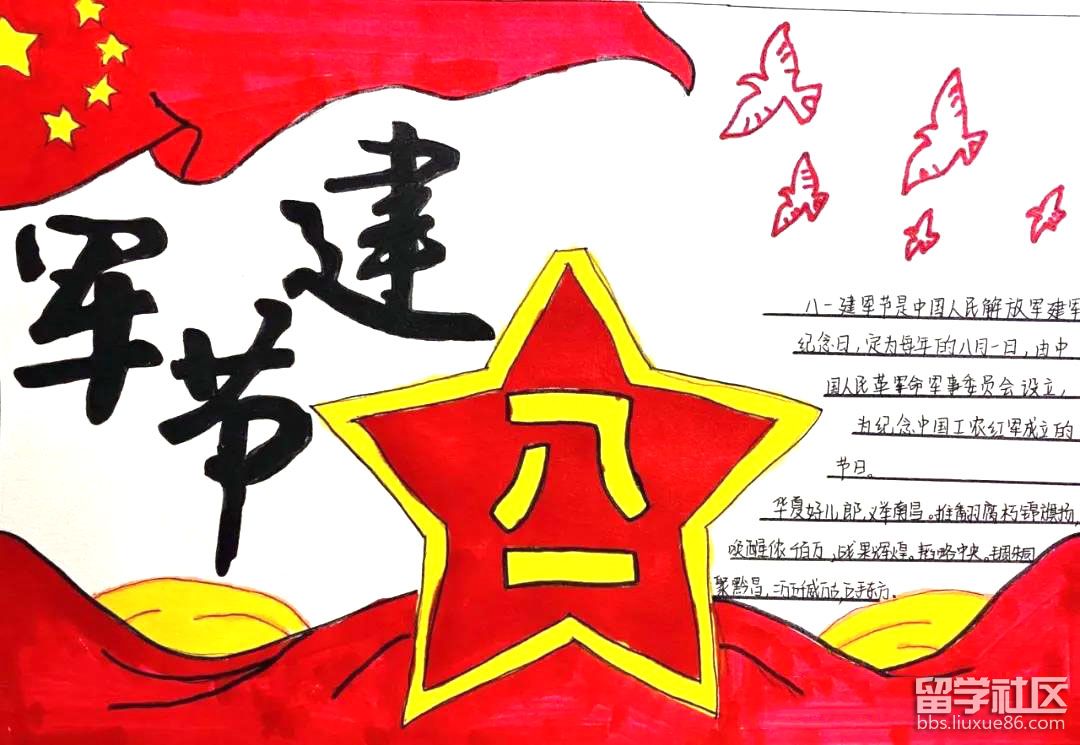 建
军
节
八
一
八一建军节是中国人民解放军建军
纪念日，定为每年的八月一日，由中
国人民革军命军事委员会设立，
为纪念中国工农红军成立的
节日。
华夏好儿郎，义举南昌。推翻腐朽锦旗扬，
唤醒侬佰万，战果辉煌。韬略中央。
聚黔昌，东方。
留学社区
bbs.liuxue86.com